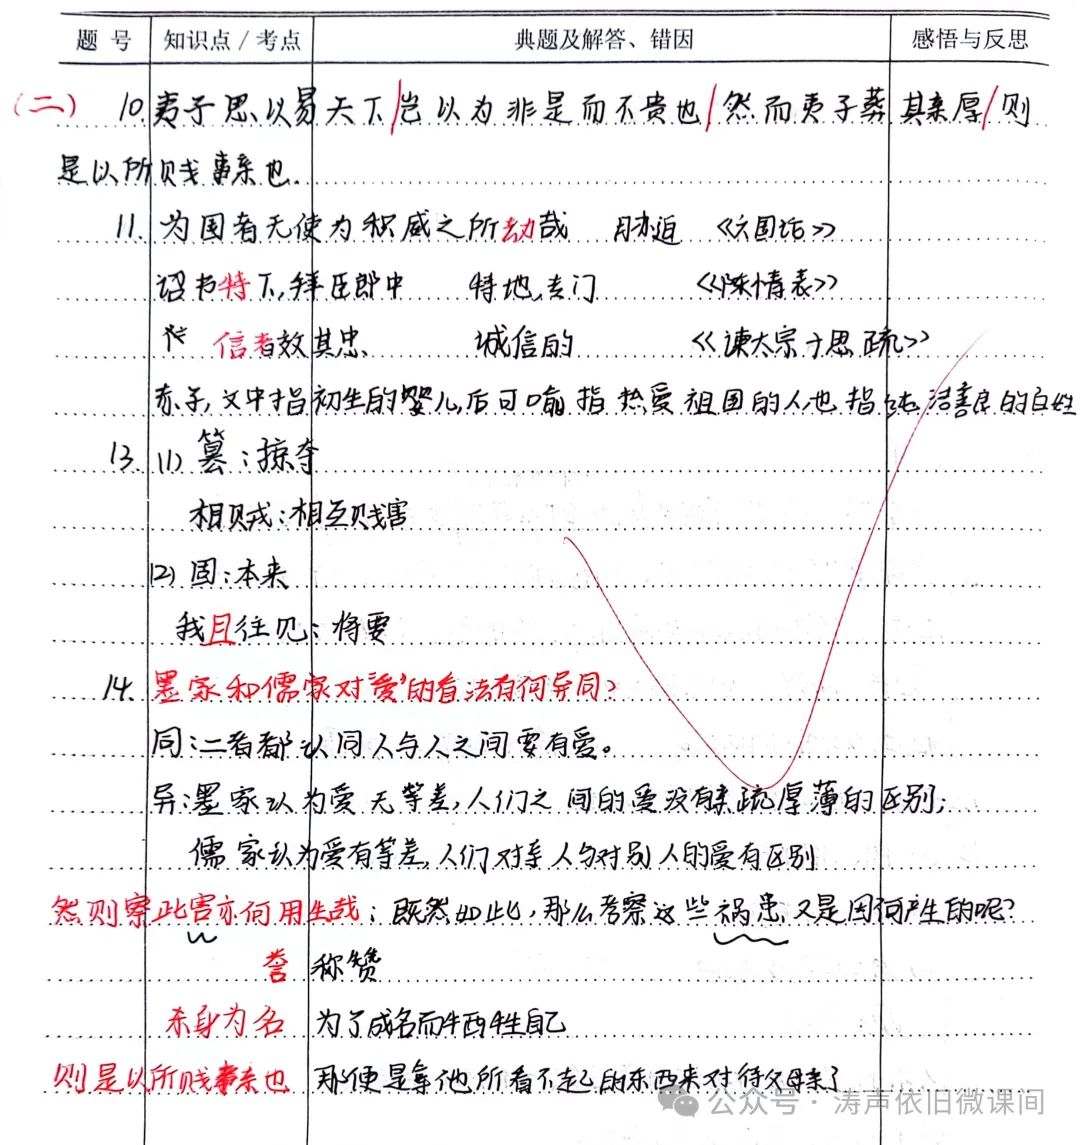 题号 知识点/考点 典题及解答、错因 感悟与反思
(二) 10. 夷子思以易天下/岂以为非是而不贵也/然而夷子葬其亲厚/则
是以所贱事亲也.
11. 为国者无使为积威之所劫哉 胁迫 《六国论》
诏书特下,拜臣郎中 特地,专门 《陈情表》
信者效其忠 诚信的 《谏太宗十思疏》
赤子,文中指初生的婴儿,后可喻指热爱祖国的人也指纯洁善良的百姓
13. (1) 篡:掠夺
相贼:相互贱害
(2) 固:本来
我且往见:将要
14. 墨家和儒家对“爱”的看法有何异同?
同:二者都认同人与人之间要有爱。
异:墨家认为爱无等差,人们之间的爱没有亲疏厚薄的区别;
儒家认为爱有等差,人们对亲人与对别人的爱有区别
然则察此害亦何用生哉:既然如此,那么考察这些祸患又是因何产生的呢?
誉 称赞
杀身为名 为了成名而牺牲自己
则是以所贱事亲也 那便是拿他所看不起的东西来对待父母亲了
公众号·涛声依旧微课间